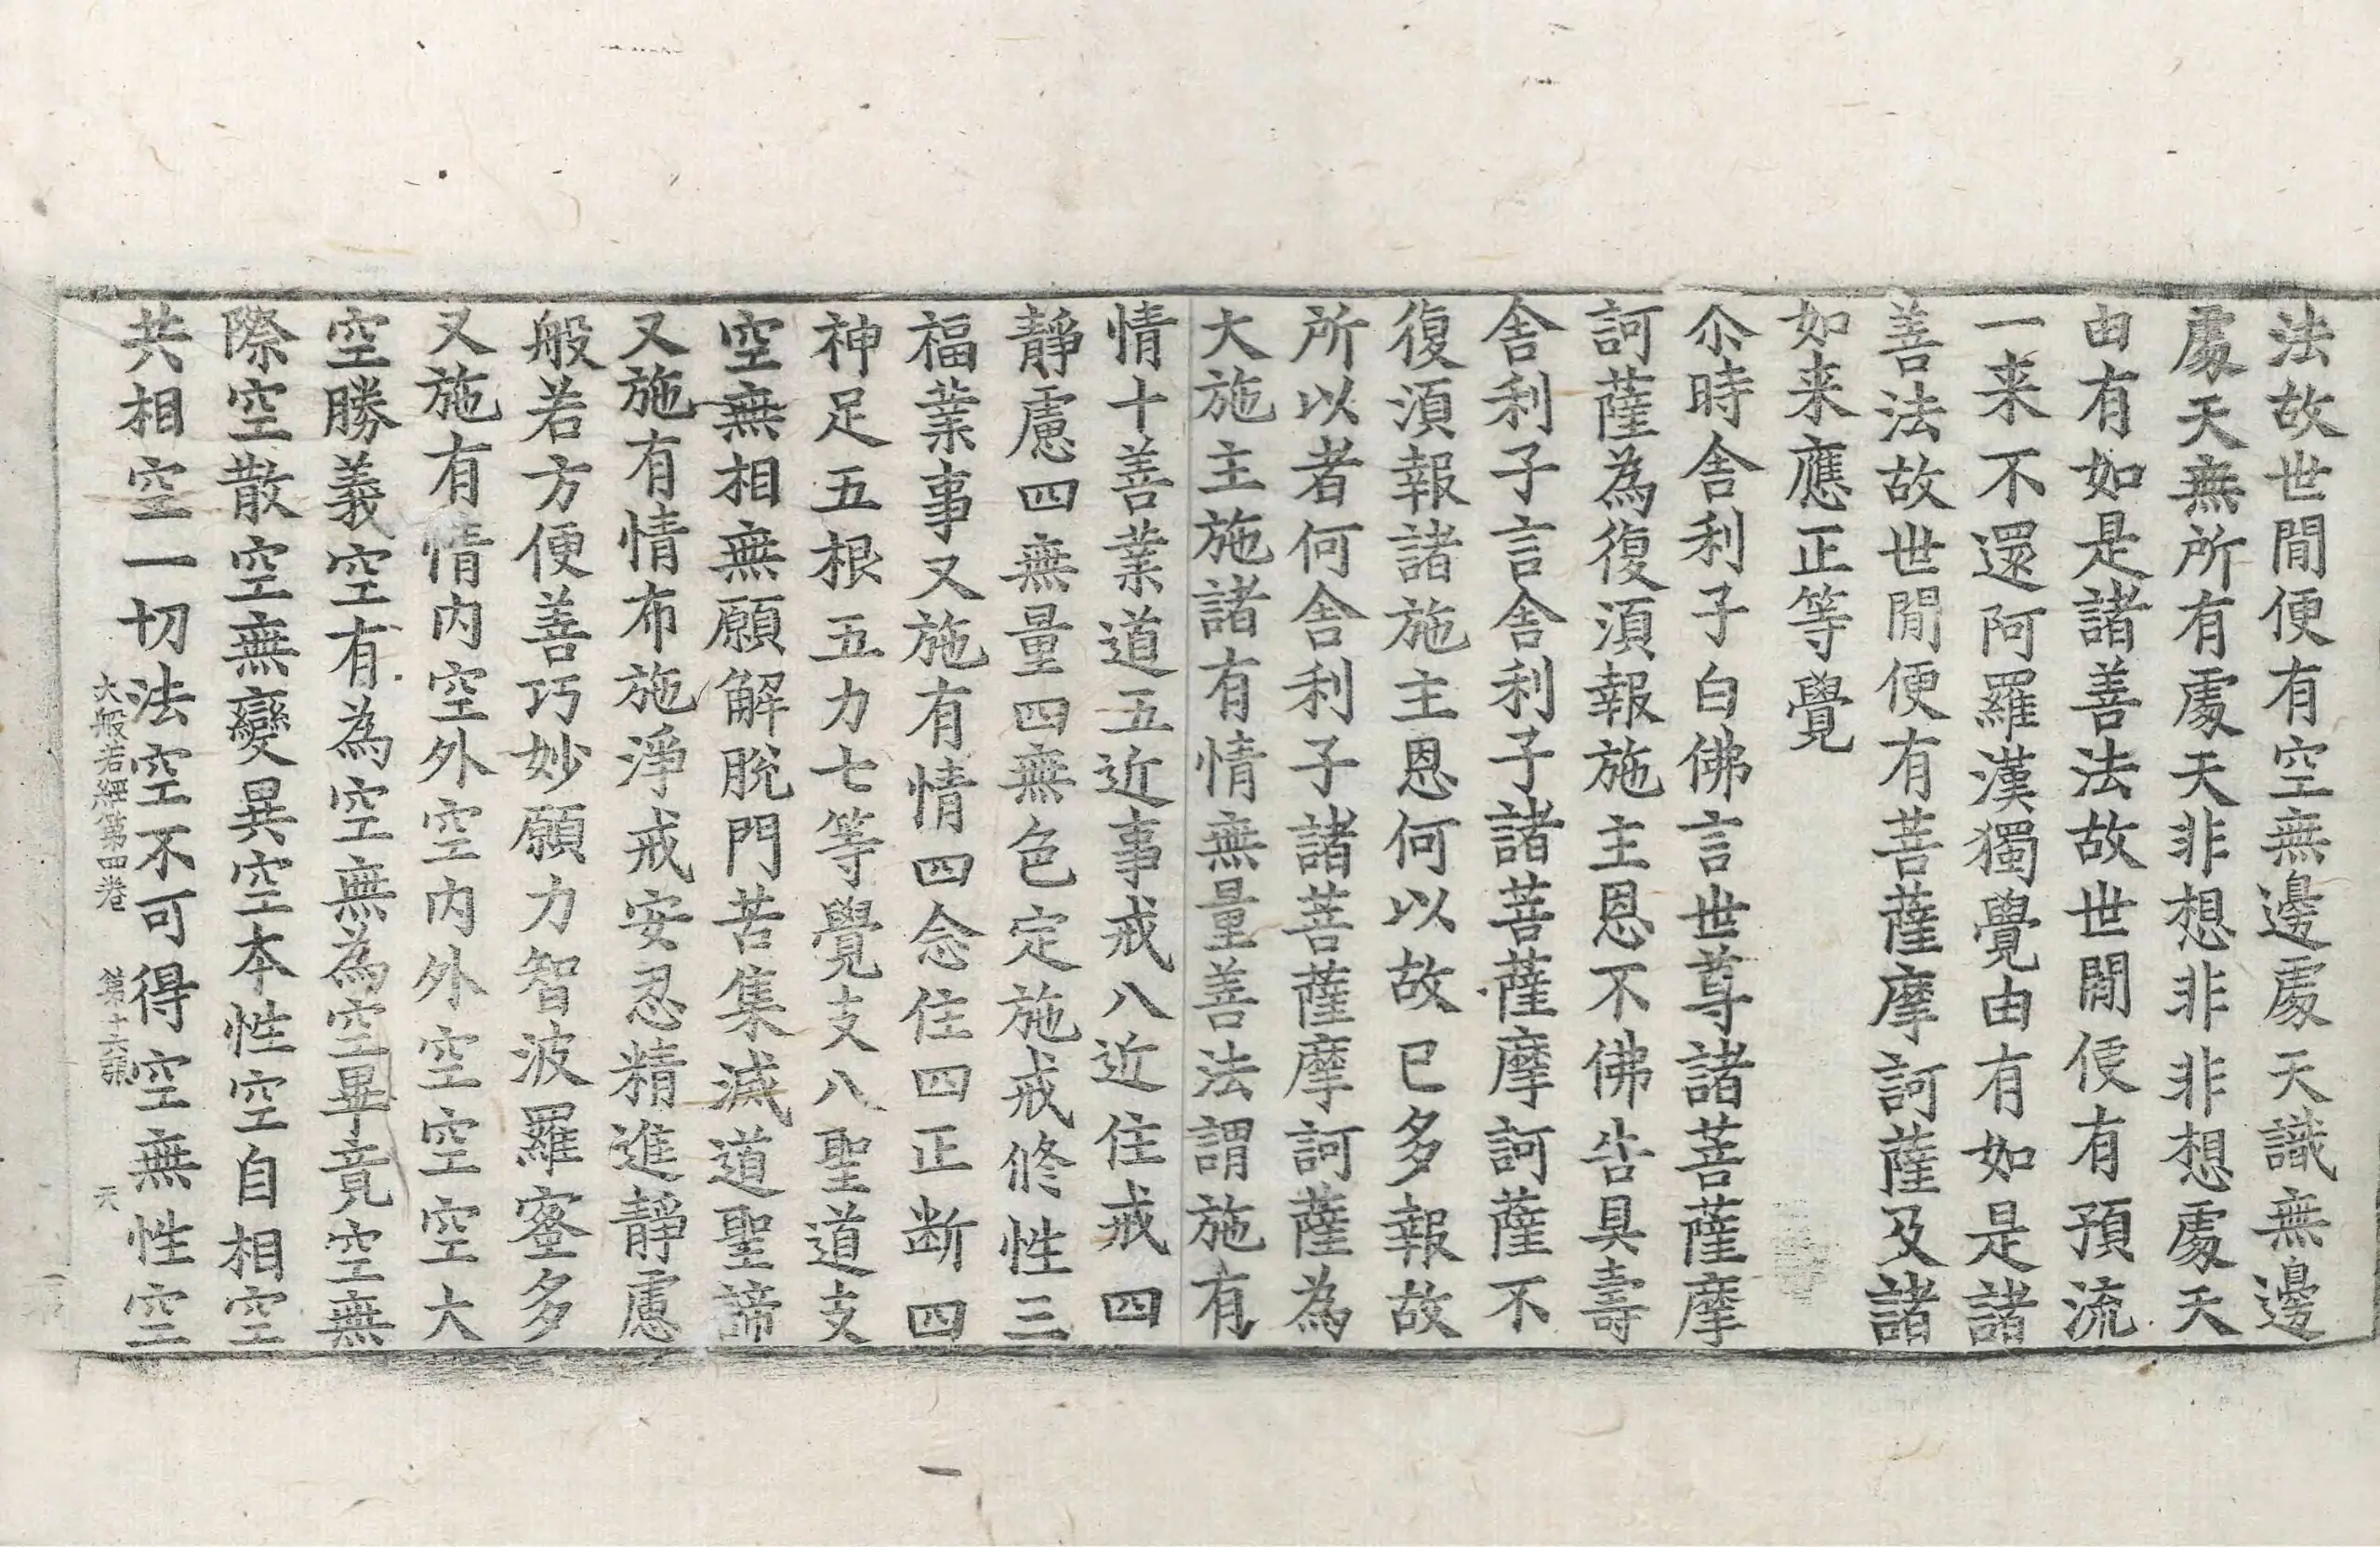 法故世閒便有空無邊處天識無邊
處天無所有處天非想非非想處天
由有如是諸善法故世閒便有預流
一来不還阿羅漢獨覺由有如是諸
善法故世閒便有菩薩摩訶薩及諸
如来應正等覺
尒時舎利子白佛言世尊諸菩薩摩
訶薩為復湏報施主恩不佛告具壽
舎利子言舎利子諸菩薩摩訶薩不
復湏報諸施主恩何以故已多報故
所以者何舎利子諸菩薩摩訶薩為
大施主施諸有情無量善法謂施有
情十善業道五近事戒八近住戒四
静慮四無量四無色定施戒修性三
福業事又施有情四念住四正断四
神足五根五力七等覺支八聖道支
空無相無願解脫門苦集滅道聖諦
又施有情布施淨戒安忍精進靜慮
般若方便善巧妙願力智波羅蜜多
又施有情内空外空内外空空空大
空勝義空有為空無為空畢竟空無
際空散空無變異空本性空自相空
共相空一切法空不可得空無性空
大般若經第四卷 第十六張 天